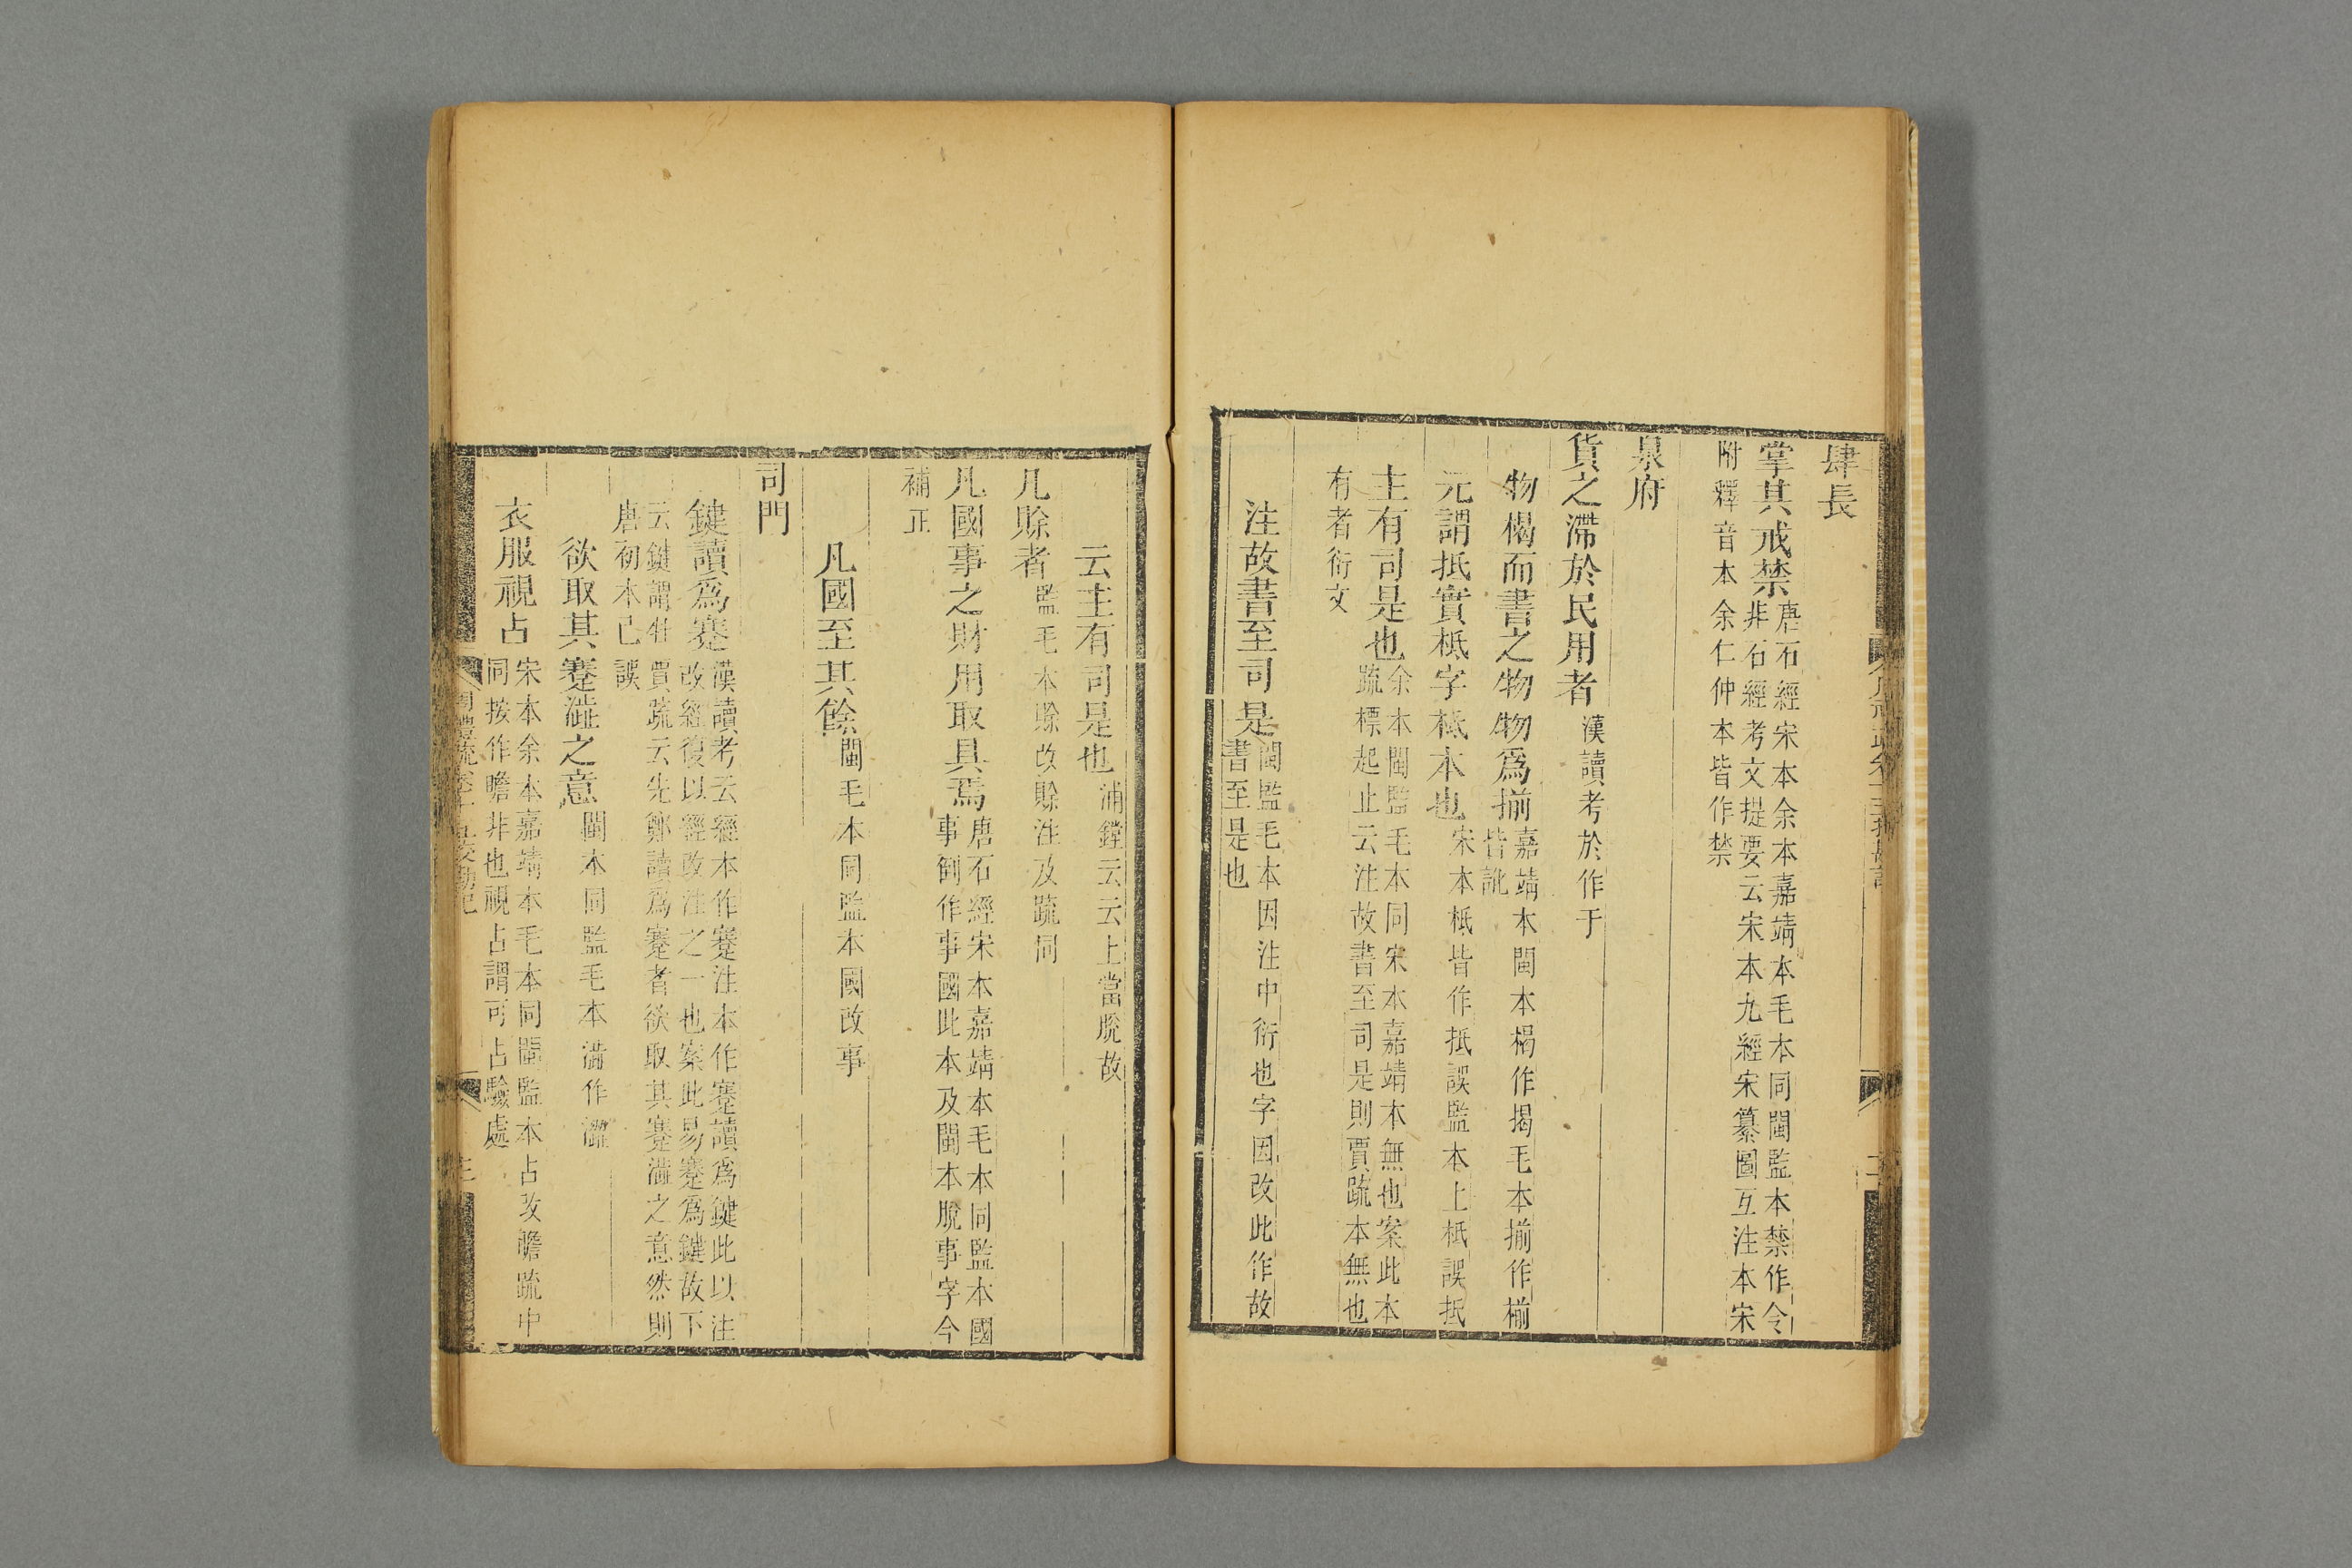 肆長
掌其戒禁唐石經宋本余本嘉靖本毛本同閩監本禁作令
非石經考文提要云宋本九經宋纂圖互注本宋
附釋音本余仁仲本皆作禁
泉府
貨之滯於民用者漢讀考於作于
物楬而書之物物爲揃嘉靖本閩本楬作揭毛本揃作椾
皆訛
元謂抵實柢字柢本也宋本柢皆作抵誤監本上柢誤抵
主有司是也余本閩監毛本同宋本嘉靖本無也案此本
疏標起止云注故書至司是則賈疏本無也
有者衍文
注故書至司是閩監毛本因注中衍也字因改此作故
書至是也
云主有司是也浦鏜云云上當脫故
凡賒者監毛本賖改賒注及疏同
凡國事之財用取具焉唐石經宋本嘉靖本毛本同監本國
事倒作事國此本及閩本脫事字今
補正
凡國至其餘閩毛本同監本國改事
司門
鍵讀爲蹇漢讀考云經本作蹇注本作蹇讀爲鍵此以注
改經復以經改注之一也案此易蹇爲鍵故下
云鍵謂牡賈疏云先鄭讀爲蹇者欲取其蹇澁之意然則
唐初本已誤
欲取其蹇澁之意閩本同監毛本澁作澀
衣服視占宋本余本嘉靖本毛本同閩監本占改瞻疏中
同按作瞻非也視占謂可占驗處
周禮疏卷十五校勘記